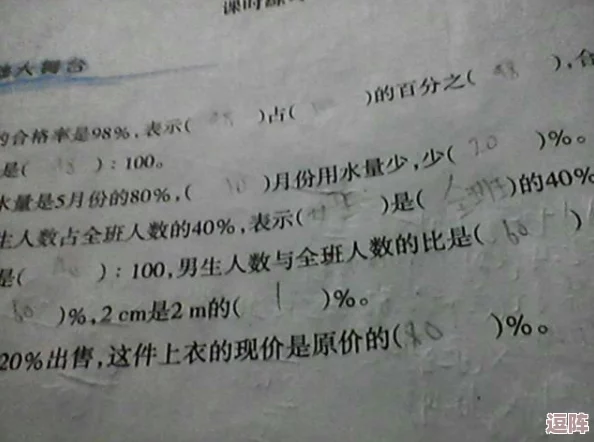 课时练
大舞台
的合格率是98%,表示( )占( )的百分之( 98 ),合
是( 98 ):100。
水量是5月份的80%,( )月份用水量少,少( 20 )%。
生人数占全班人数的40%,表示( 女生 )是( 全班 )的40%
是( ):100,男生人数与全班人数的比是( 60 )
60 )%,2 cm是2 m的( 1 )%。
20%出售,这件上衣的现价是原价的( 80 )%。
逗阵